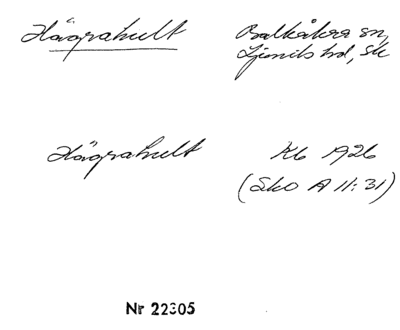 Hägrahult
Balkåkra sn,
Ljunits hd, Sk
Hägrahult
Kb 1926
(Sko A II:31)
Nr 22305